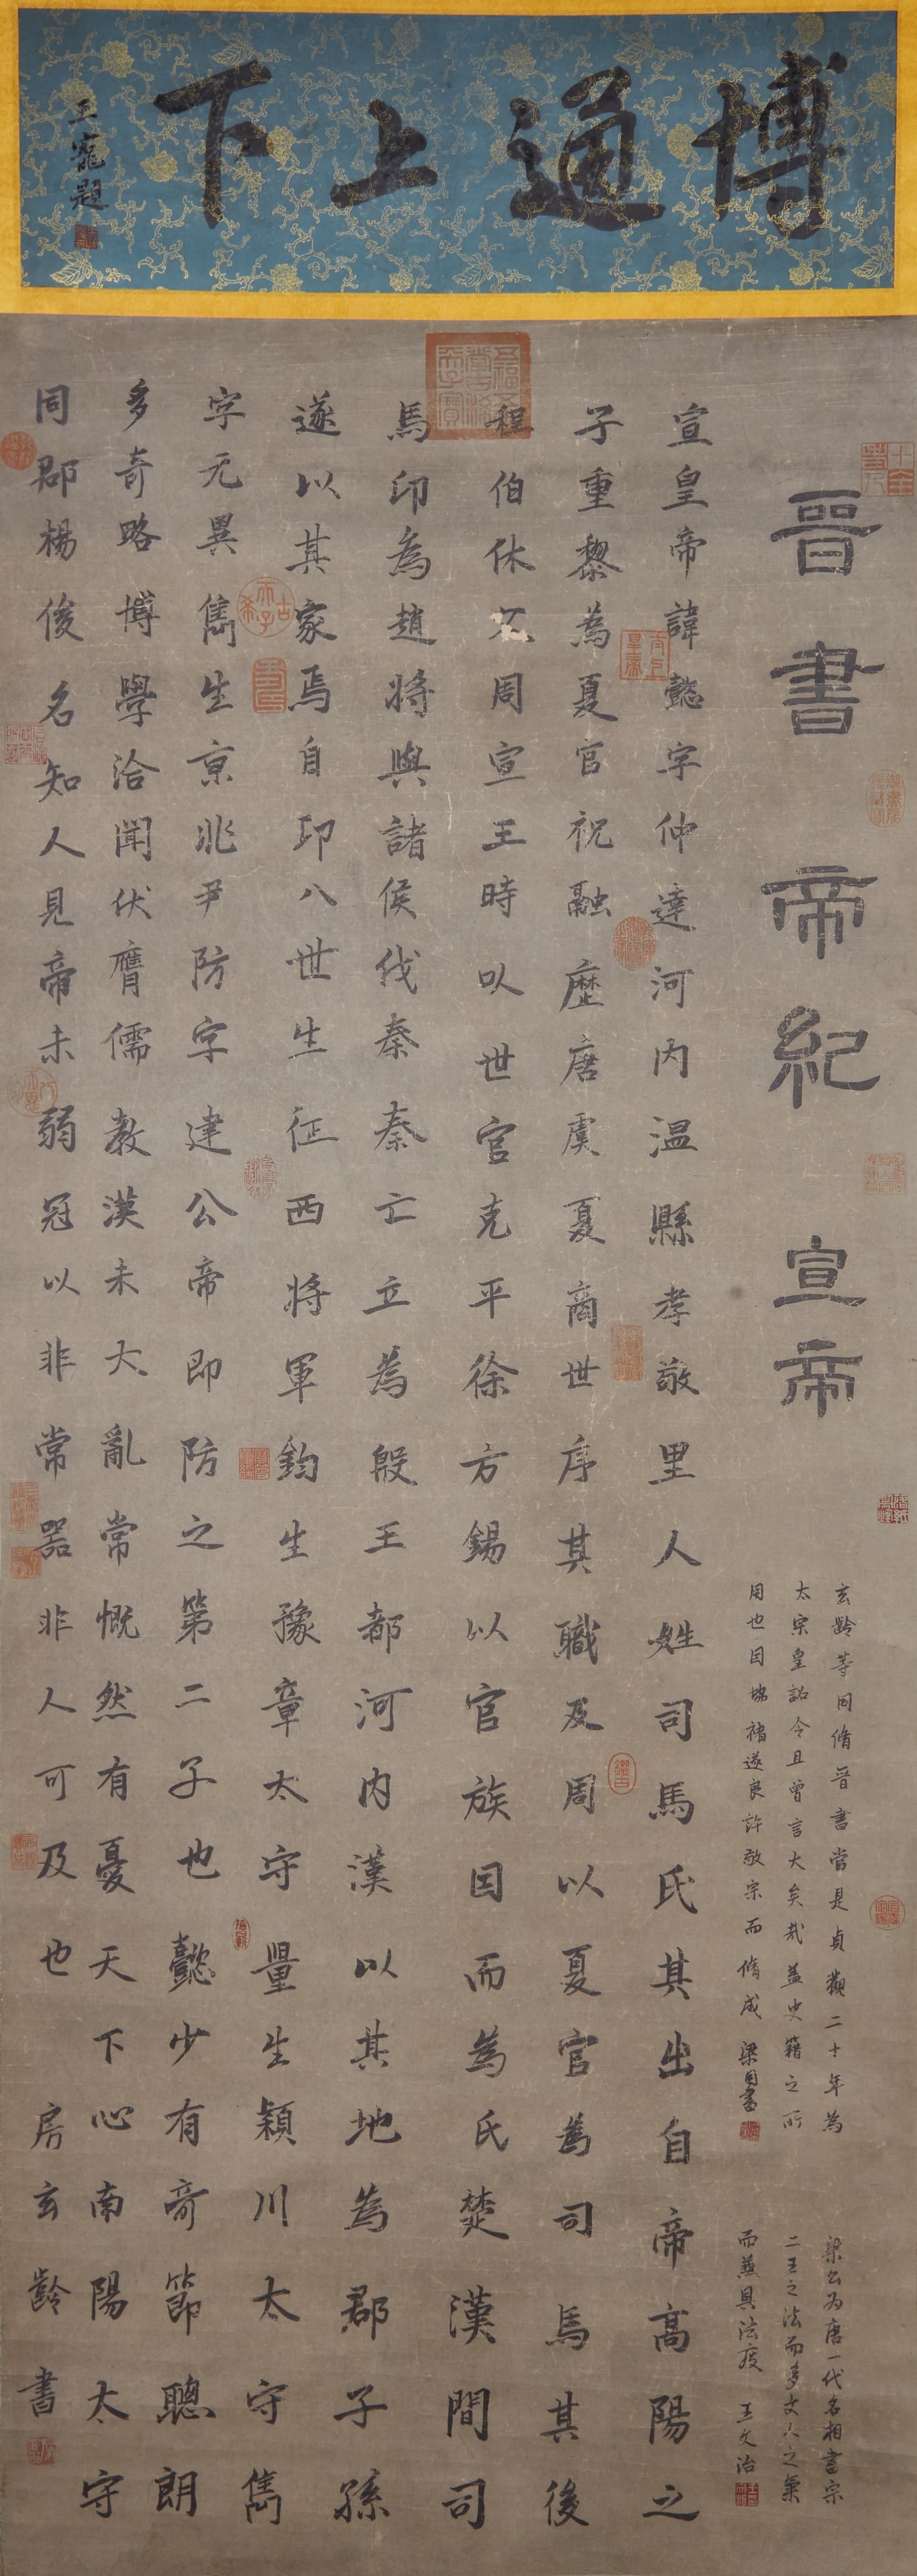 博通上下
王寵題
晉書 帝紀 宣帝
玄齡等同脩晉書當是貞觀二十年為
太宗皇詔令且曾言大矣哉蓋史籍之所
用也因與褚遂良許敬宗而脩成 梁國書
梁公為唐一代名相書宗
二王之法而多文人之氣
而兼具法度 王文治
宣皇帝諱懿字仲達河內温縣孝敬里人姓司馬氏其出自帝高陽之
子重黎為夏官祝融歷唐虞夏商世序其職及周以夏官為司馬其後
程伯休父周宣王時以世官克平徐方錫以官族因而為氏楚漢間司
馬卬為趙將與諸侯伐秦秦亡立為殷王都河內漢以其地為郡子孫
遂以其家焉自卬八世生征西將軍鈞生豫章太守量生潁川太守雋
字元異雋生京兆尹防字建公帝即防之第二子也懿少有奇節聰朗
多奇略博學洽聞伏膺儒教漢末大亂常慨然有憂天下心南陽太守
同郡楊俊名知人見帝未弱冠以非常器非人可及也 房玄齡書